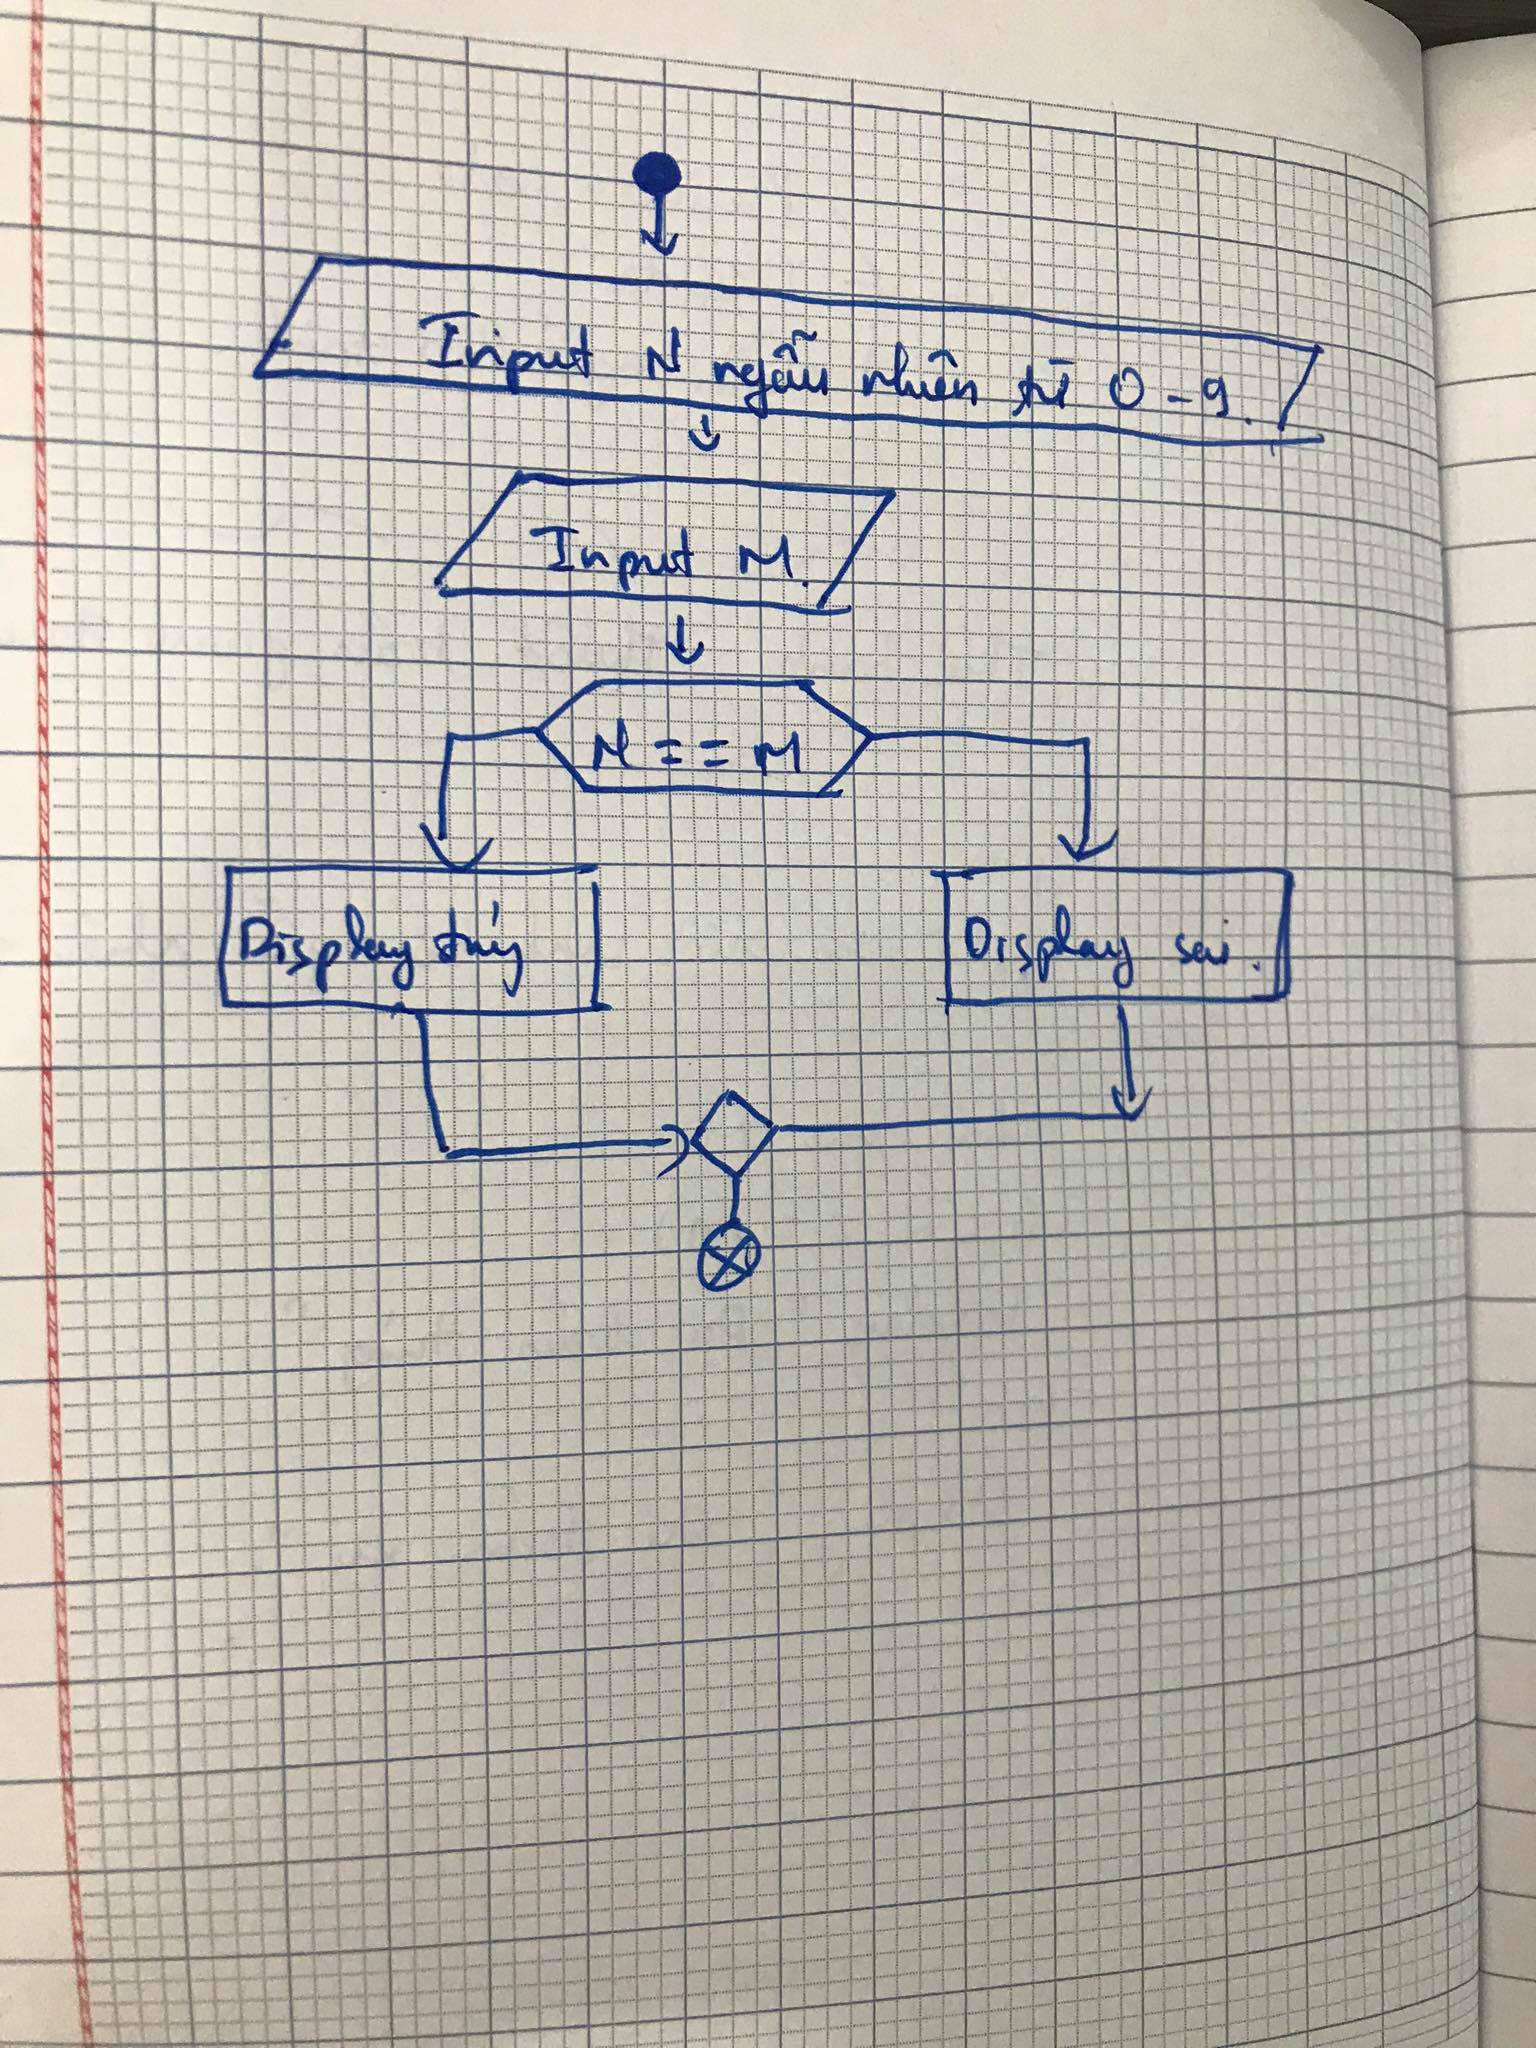 Input N ngẫu nhiên từ 0-9.
Input M.
N == M
Display đúng
Display sai.